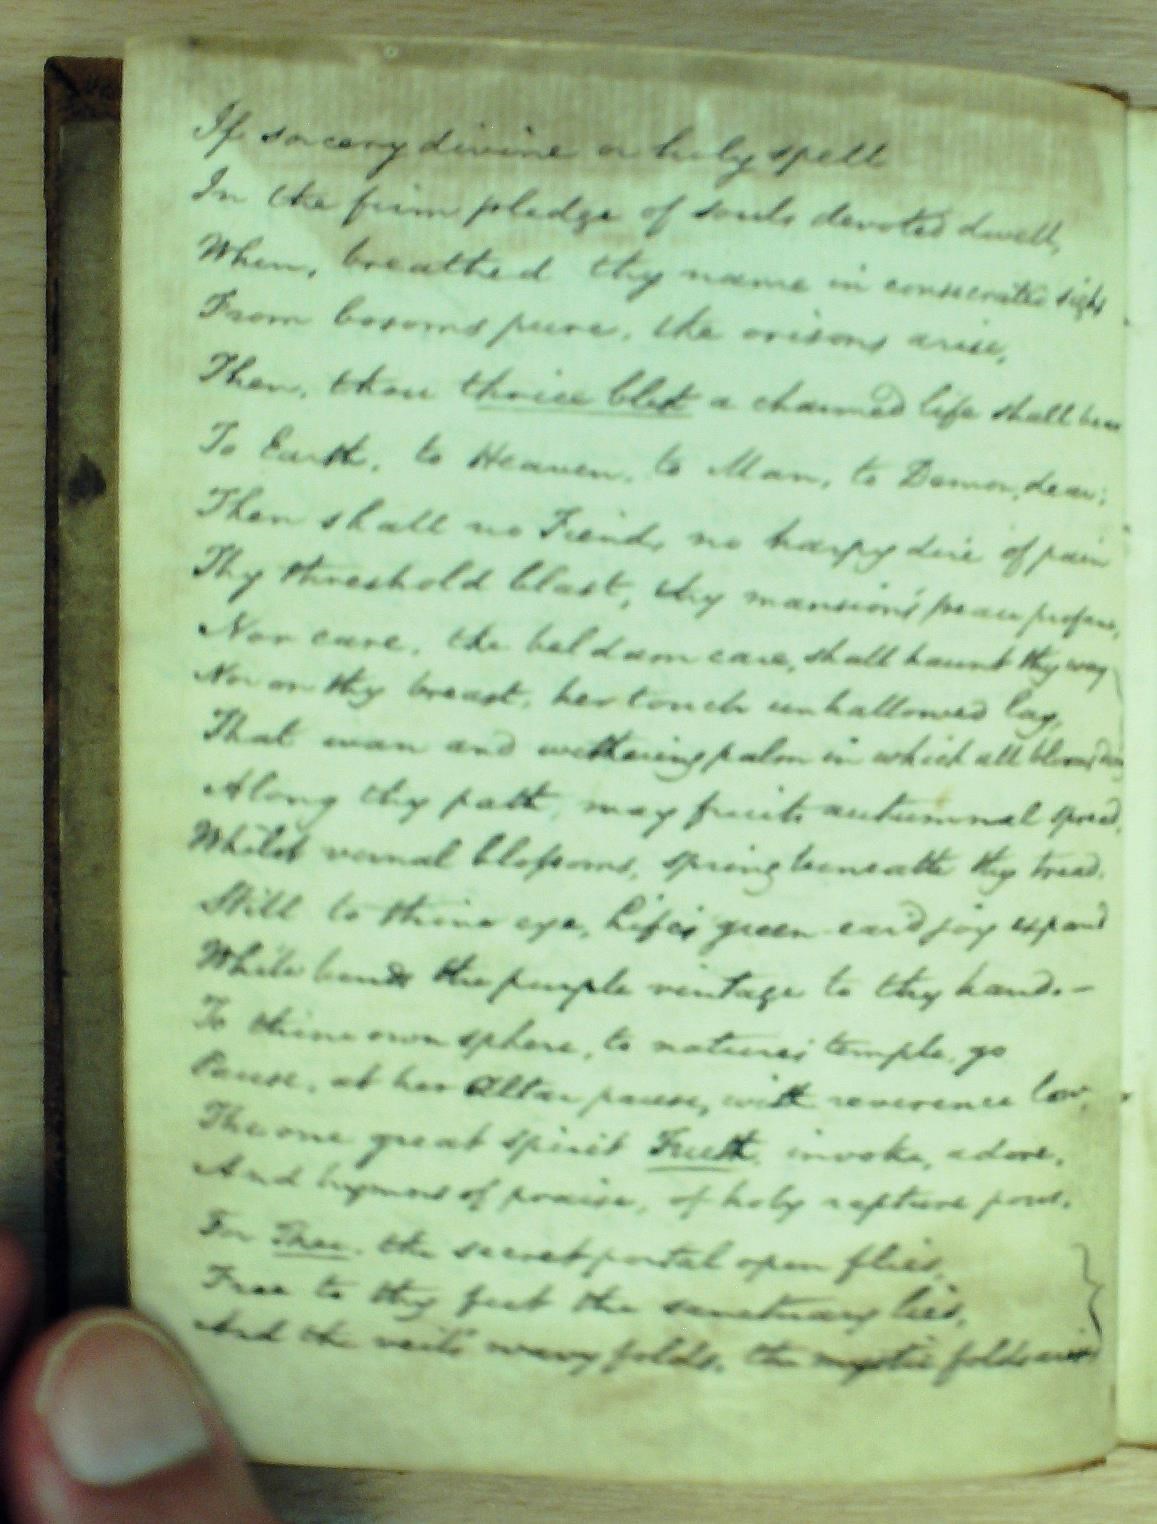 If sorcery divine or holy spell
In the firm pledge of souls devoted dwell,
When, breathed thy name in consecrated sighs
From bosoms pure, the orisons arise,
Then, thou thrice blest a charmed life shall bear
To Earth, to Heaven, to Man, to Demon, dear;
Then shall no Fiend, no harpy dire of pain
Thy threshold blast, thy mansion's peace profane,
Nor care, the beldam care, shall haunt thy way
Nor on thy breast, her touch unhallowed lay,
That wan and withering palm in which all blooms
Along thy path, may fruits autumnal spread,
Whilst vernal blossoms, spring beneath thy tread.
Still to thine eye, Life's green-ear'd joy expand
While bends the purple vintage to thy hand.—
To thine own sphere, to nature's temple, go
Pause, at her Altar pause, with reverence low,
The one great spirit Truth, invoke, adore,
And hymns of praise, of holy rapture pour.
For Thee, the secret portal open flies,
Free to thy feet the sanctuary lies,
And the veil's wavy folds, the mystic folds